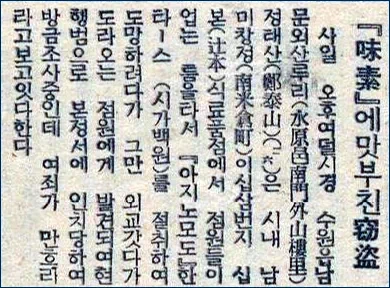 『味素』에맛부친窃盜
사일 오후여덜시경 수원읍남
문외산루리(水原邑南門外山樓里)
정태산(鄭泰山)은 시내 남
미창정(南米倉町)이십삼번지 십
본(辻本)식료품점에서 점원들이
업는 틈을타서 『아지노모도』한
타ー스(시가백원)를 절취하여
도망하려다가 그만 외교갓다가
도라오는 점원에게 발견되여현
행범으로 본정서에 인치당하여
방금조사중인데 여죄가 만흐리
라고보고잇다한다